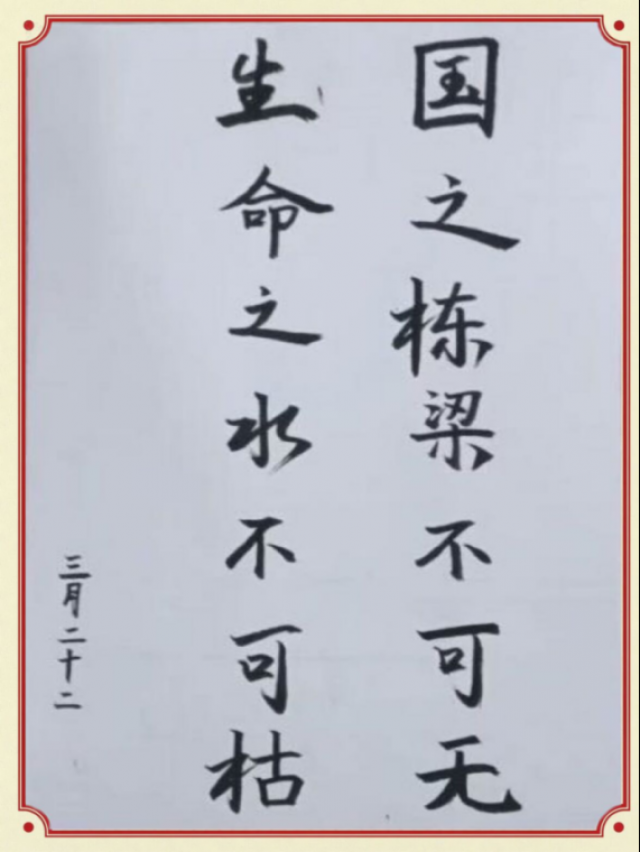 国之栋梁不可无
生命之水不可枯
三月二十二